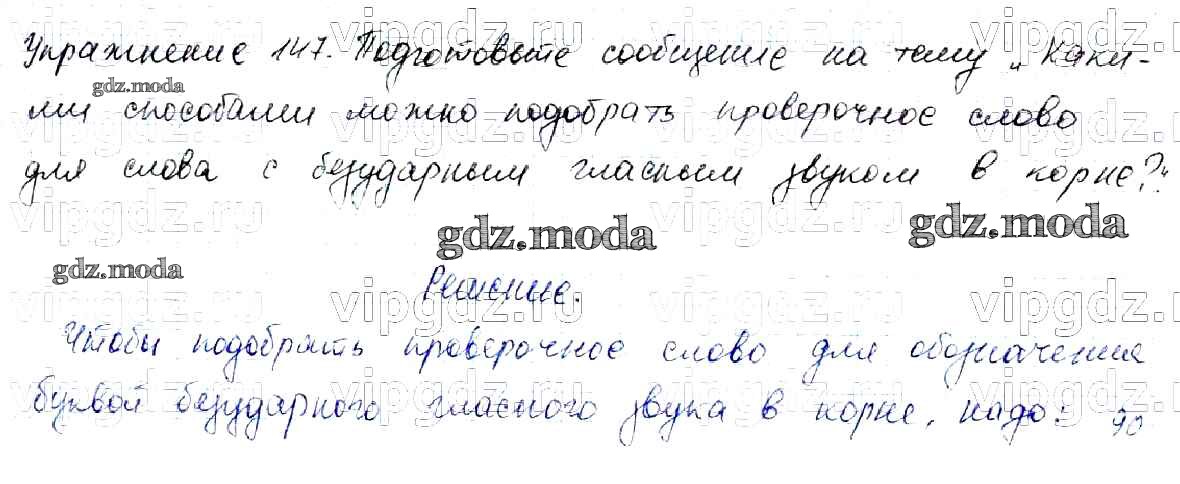 Упражнение 147. Подготовьте сообщение на тему „Каки-
gdz.moda
ми способами можно подобрать проверочное слово
для слова с безударным гласным звуком в корне?"
gdz.moda
gdz.moda
gdz.moda
Решение.
Чтобы подобрать проверочное слово для обозначения
буквой безударного гласного звука в корне, надо: 90
vipgdz.ru